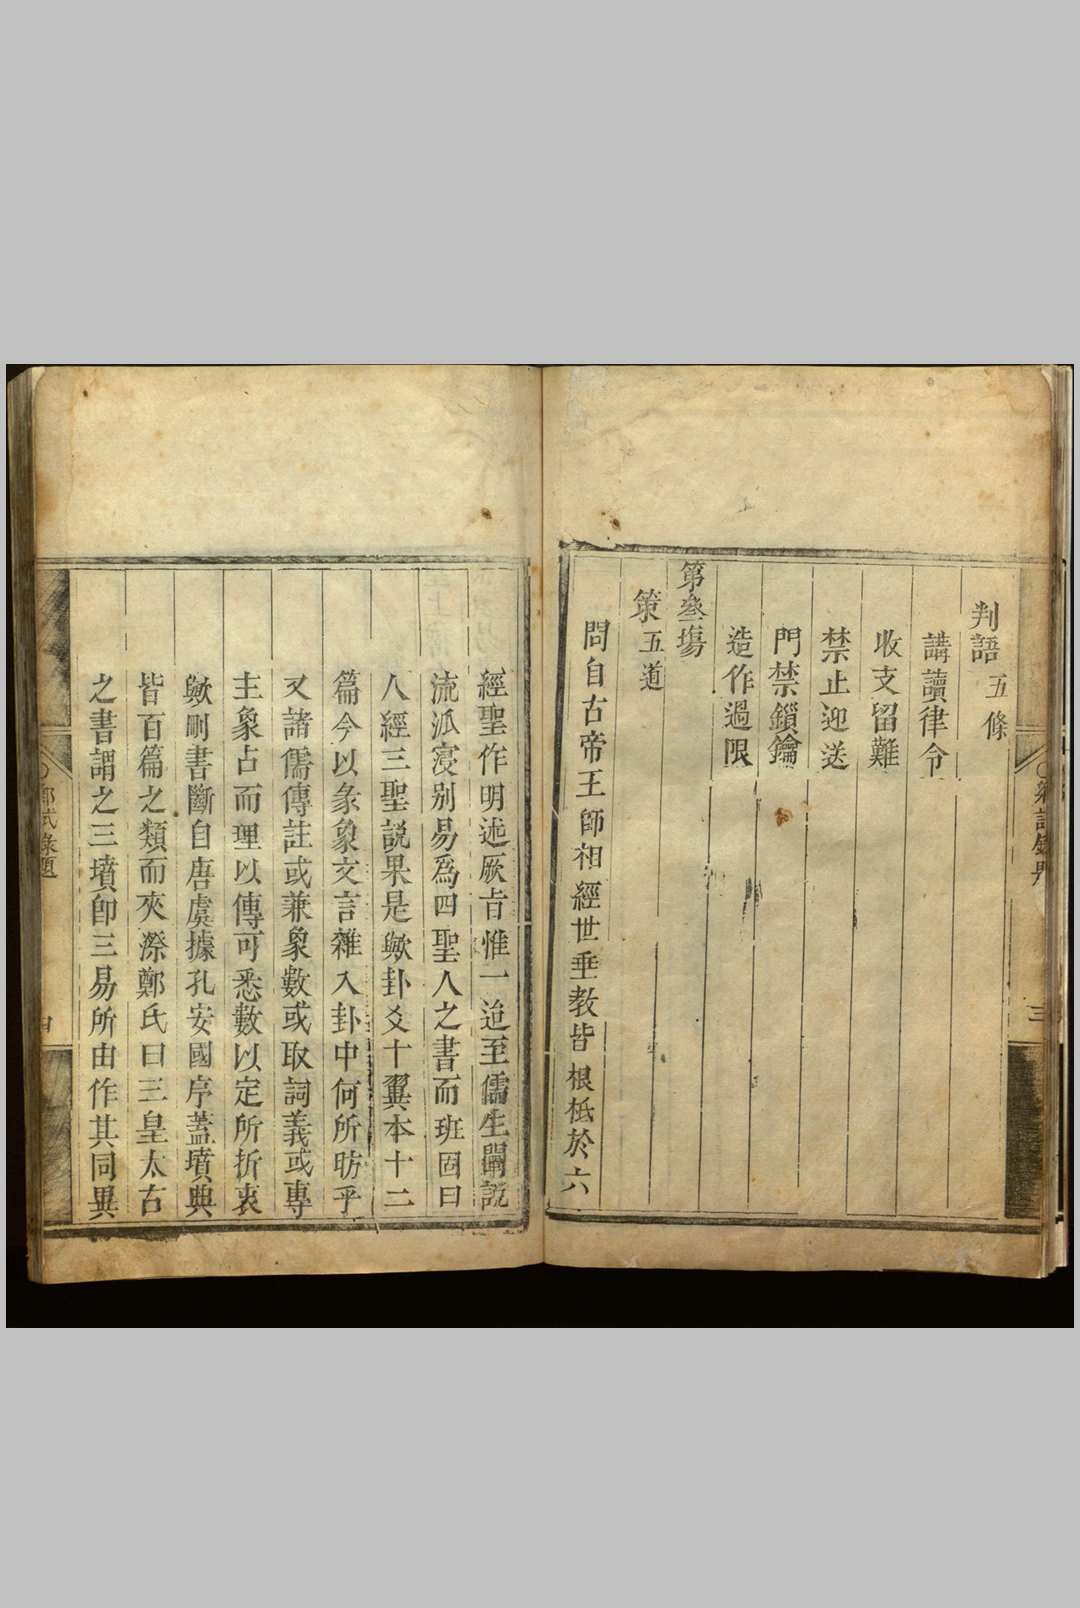 判語五條
講讀律令
收支留難
禁止迎送
門禁鎖鑰
造作過限
第叁塲
策五道
問自古帝王師相經世垂教皆根柢於六
經聖作明述厥旨惟一迨至儒生闢説
流泒寖别易為四聖人之書而班固曰
人經三聖説果是歟卦爻十翼本十二
篇今以彖象文言雜入卦中何所昉乎
又諸儒傳註或兼象數或取詞義或專
主象占而理以傳可悉數以定所折衷
歟刪書斷自唐虞據孔安國序蓋墳典
皆百篇之類而夾漈鄭氏曰三皇太古
之書謂之三墳即三易所由作其同異
三